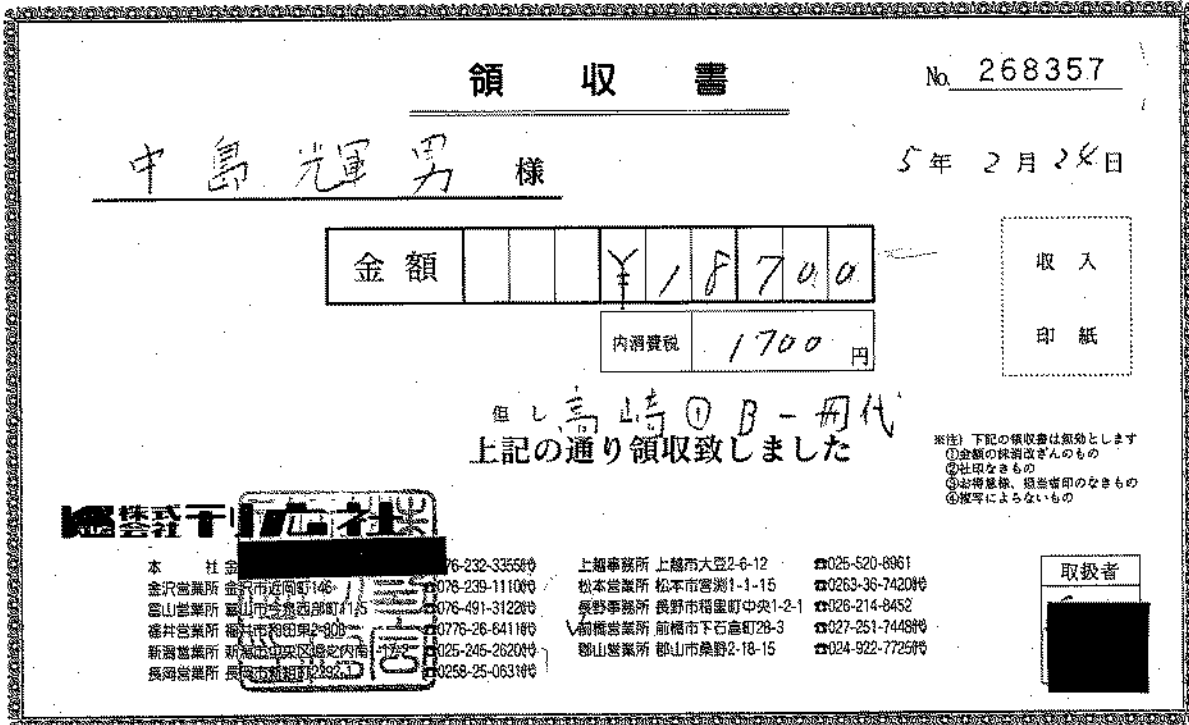 領収書
No. 268357
中島 光輝男 様
5年 2月 24日
金額 ¥18700
内消費税 1700円
収入
印紙
但し 高崎① B-冊代
上記の通り領収致しました
※注) 下記の領収書は無効とします
①金額の抹消改ざんのもの
②社印なきもの
③お得意様、担当者印のなきもの
④複写によらないもの
株式会社
本社 金 076-232-3355㈹
金沢営業所 金沢市近岡町146 ☎076-239-1110㈹
富山営業所 富山市今泉西部町 ☎076-491-3122㈹
福井営業所 福井市和田東2-908 ☎0776-26-6411㈹
新潟営業所 新潟市中央区 ☎025-245-2620㈹
長岡営業所 長岡市 ☎0258-25-0631㈹
上越事務所 上越市大豆2-6-12 ☎025-520-8961
松本営業所 松本市宮渕1-1-15 ☎0263-36-7420㈹
長野事務所 長野市稲里町中央1-2-1 ☎026-214-8452
前橋営業所 前橋市下石倉町28-3 ☎027-251-7448㈹
郡山営業所 郡山市桑野2-18-15 ☎024-922-7725㈹
取扱者